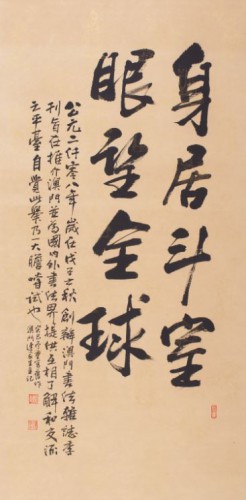 身居斗室
眼望全球
公元二仟零八年歲在戊子之秋創辦澳門書法雜誌季
刊旨在推介澳門並為國內外書法界提供互相了解和交流
之平臺自覺此舉乃一大膽嘗試也